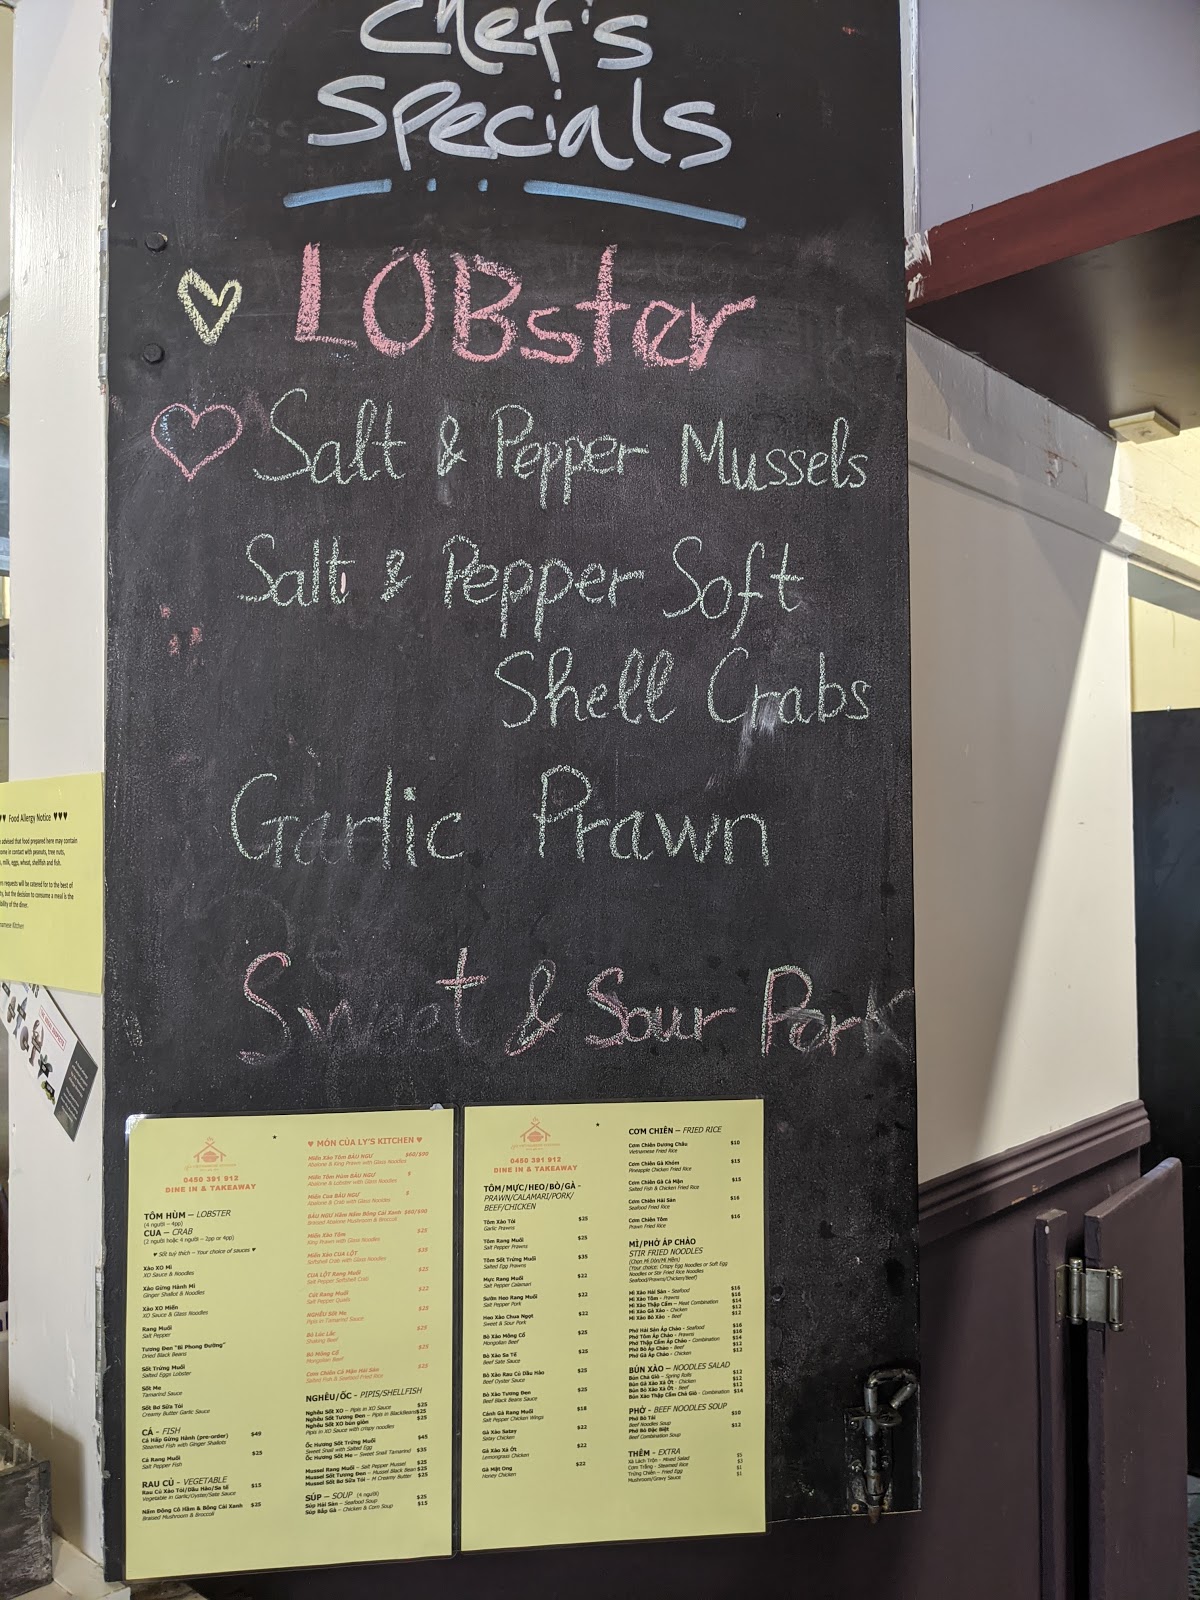 Chef's
Specials
LOBster
Salt & Pepper Mussels
Salt & Pepper Soft
Shell Crabs
Garlic Prawn
Sweet & Sour Pork
Food Allergy Notice
advised that food prepared here may contain
come in contact with peanuts, tree nuts,
milk, eggs, wheat, shellfish and fish.
requests will be catered for to the best of
but the decision to consume a meal is the
of the diner.
Kitchen
0450 391 912
DINE IN & TAKEAWAY
TÔM HÙM – LOBSTER
(4 người – 4pp)
CUA – CRAB
(2 người hoặc 4 người – 2pp or 4pp)
♥ Sốt tuỳ thích – Your choice of sauces ♥
Xào XO Mì
XO Sauce & Noodles
Xào Gừng Hành Mì
Ginger Shallot & Noodles
Xào XO Miến
XO Sauce & Glass Noodles
Rang Muối
Salt Pepper
Tương Đen "Bi Phong Đường"
Dried Black Beans
Sốt Trứng Muối
Salted Eggs Lobster
Sốt Me
Tamarind Sauce
Sốt Bơ Sữa Tỏi
Creamy Butter Garlic Sauce
CÁ - FISH
Cá Hấp Gừng Hành (pre-order) $49
Steamed Fish with Ginger Shallots
Cá Rang Muối $25
Salt Pepper Fish
RAU CỦ - VEGETABLE
Rau Củ Xào Tỏi/Dầu Hào/Sa tế $15
Vegetable in Garlic/Oyster/Sate Sauce
Nấm Đông Cô Hầm & Bông Cải Xanh $25
Braised Mushroom & Broccoli
♥ MÓN CỦA LY'S KITCHEN ♥
Miến Xào Tôm BÀU NGƯ
Abalone & King Prawn with Glass Noodles
Miến Tôm Hùm BÀU NGƯ
Abalone & Lobster with Glass Noodles
Miến Cua BÀU NGƯ
Abalone & Crab with Glass Noodles
BÀU NGƯ Hầm Nấm Bông Cải Xanh
Braised Abalone Mushroom & Broccoli
Miến Xào Tôm $25
King Prawn with Glass Noodles
Miến Xào CUA LỘT $35
Softshell Crab with Glass Noodles
CUA LỘT Rang Muối $25
Salt Pepper Softshell Crab
Cút Rang Muối $22
Salt Pepper Quails
NGHÊU Sốt Me $25
Pipis in Tamarind Sauce
Bò Lúc Lắc $25
Shaking Beef
Bò Mông Cổ $25
Mongolian Beef
Cơm Chiên Cá Mặn Hải Sản $25
Salted Fish & Seafood Fried Rice
NGHÊU/ỐC - PIPIS/SHELLFISH
Nghêu Sốt XO – Pipis in XO Sauce $25
Nghêu Sốt Tương Đen – Pipis in BlackBeans $25
Nghêu Sốt XO bún giòn $25
Pipis in XO Sauce with crispy noodles
Ốc Hương Sốt Trứng Muối $45
Sweet Snail with Salted Egg
Ốc Hương Sốt Me – Sweet Snail Tamarind $35
Mussel Rang Muối – Salt Pepper Mussel $25
Mussel Sốt Tương Đen – Mussel Black Bean $25
Mussel Sốt Bơ Sữa Tỏi – M Creamy Butter $25
SÚP – SOUP (4 người)
Súp Hải Sản – Seafood Soup $25
Súp Bắp Gà – Chicken & Corn Soup $15
0450 391 912
DINE IN & TAKEAWAY
TÔM/MỰC/HEO/BÒ/GÀ -
PRAWN/CALAMARI/PORK/
BEEF/CHICKEN
Tôm Xào Tỏi $25
Garlic Prawns
Tôm Rang Muối $25
Salt Pepper Prawns
Tôm Sốt Trứng Muối $35
Salted Egg Prawns
Mực Rang Muối $22
Salt Pepper Calamari
Sườn Heo Rang Muối $22
Salt Pepper Pork
Heo Xào Chua Ngọt $22
Sweet & Sour Pork
Bò Xào Mông Cổ $25
Mongolian Beef
Bò Xào Sa Tế $25
Beef Sate Sauce
Bò Xào Rau Củ Dầu Hào $25
Beef Oyster Sauce
Bò Xào Tương Đen $25
Beef Black Beans Sauce
Cánh Gà Rang Muối $18
Salt Pepper Chicken Wings
Gà Xào Satay $22
Satay Chicken
Gà Xào Xả Ớt $22
Lemongrass Chicken
Gà Mật Ong $22
Honey Chicken
CƠM CHIÊN – FRIED RICE
Cơm Chiên Dương Châu $10
Vietnamese Fried Rice
Cơm Chiên Gà Khóm $15
Pineapple Chicken Fried Rice
Cơm Chiên Gà Cá Mặn $15
Salted Fish & Chicken Fried Rice
Cơm Chiên Hải Sản $16
Seafood Fried Rice
Cơm Chiên Tôm $16
Prawn Fried Rice
MÌ/PHỞ ÁP CHẢO
STIR FRIED NOODLES
(Chọn Mì Dòn/Mì Mềm)
(Your choice: Crispy Egg Noodles or Soft Egg
Noodles or Stir Fried Rice Noodles
Seafood/Prawns/Chicken/Beef)
Mì Xào Hải Sản - Seafood $16
Mì Xào Tôm - Prawns $16
Mì Xào Thập Cẩm – Meat Combination $14
Mì Xào Gà Xào - Chicken $12
Mì Xào Bò Xào - Beef $12
Phở Hải Sản Áp Chảo - Seafood $16
Phở Tôm Áp Chảo - Prawns $16
Phở Thập Cẩm Áp Chảo - Combination $14
Phở Bò Áp Chảo - Beef $12
Phở Gà Áp Chảo - Chicken $12
BÚN XÀO – NOODLES SALAD
Bún Chả Giò – Spring Rolls $12
Bún Gà Xào Xả Ớt - Chicken $12
Bún Bò Xào Xả Ớt - Beef $12
Bún Xào Thập Cẩm Chả Giò - Combination $14
PHỞ - BEEF NOODLES SOUP
Phở Bò Tái $10
Beef Noodles Soup
Phở Bò Đặc Biệt $12
Beef Combination Soup
THÊM - EXTRA
Xà Lách Trộn - Mixed Salad
Cơm Trắng - Steamed Rice
Trứng Chiên – Fried Egg
Mushroom/Gravy Sauce